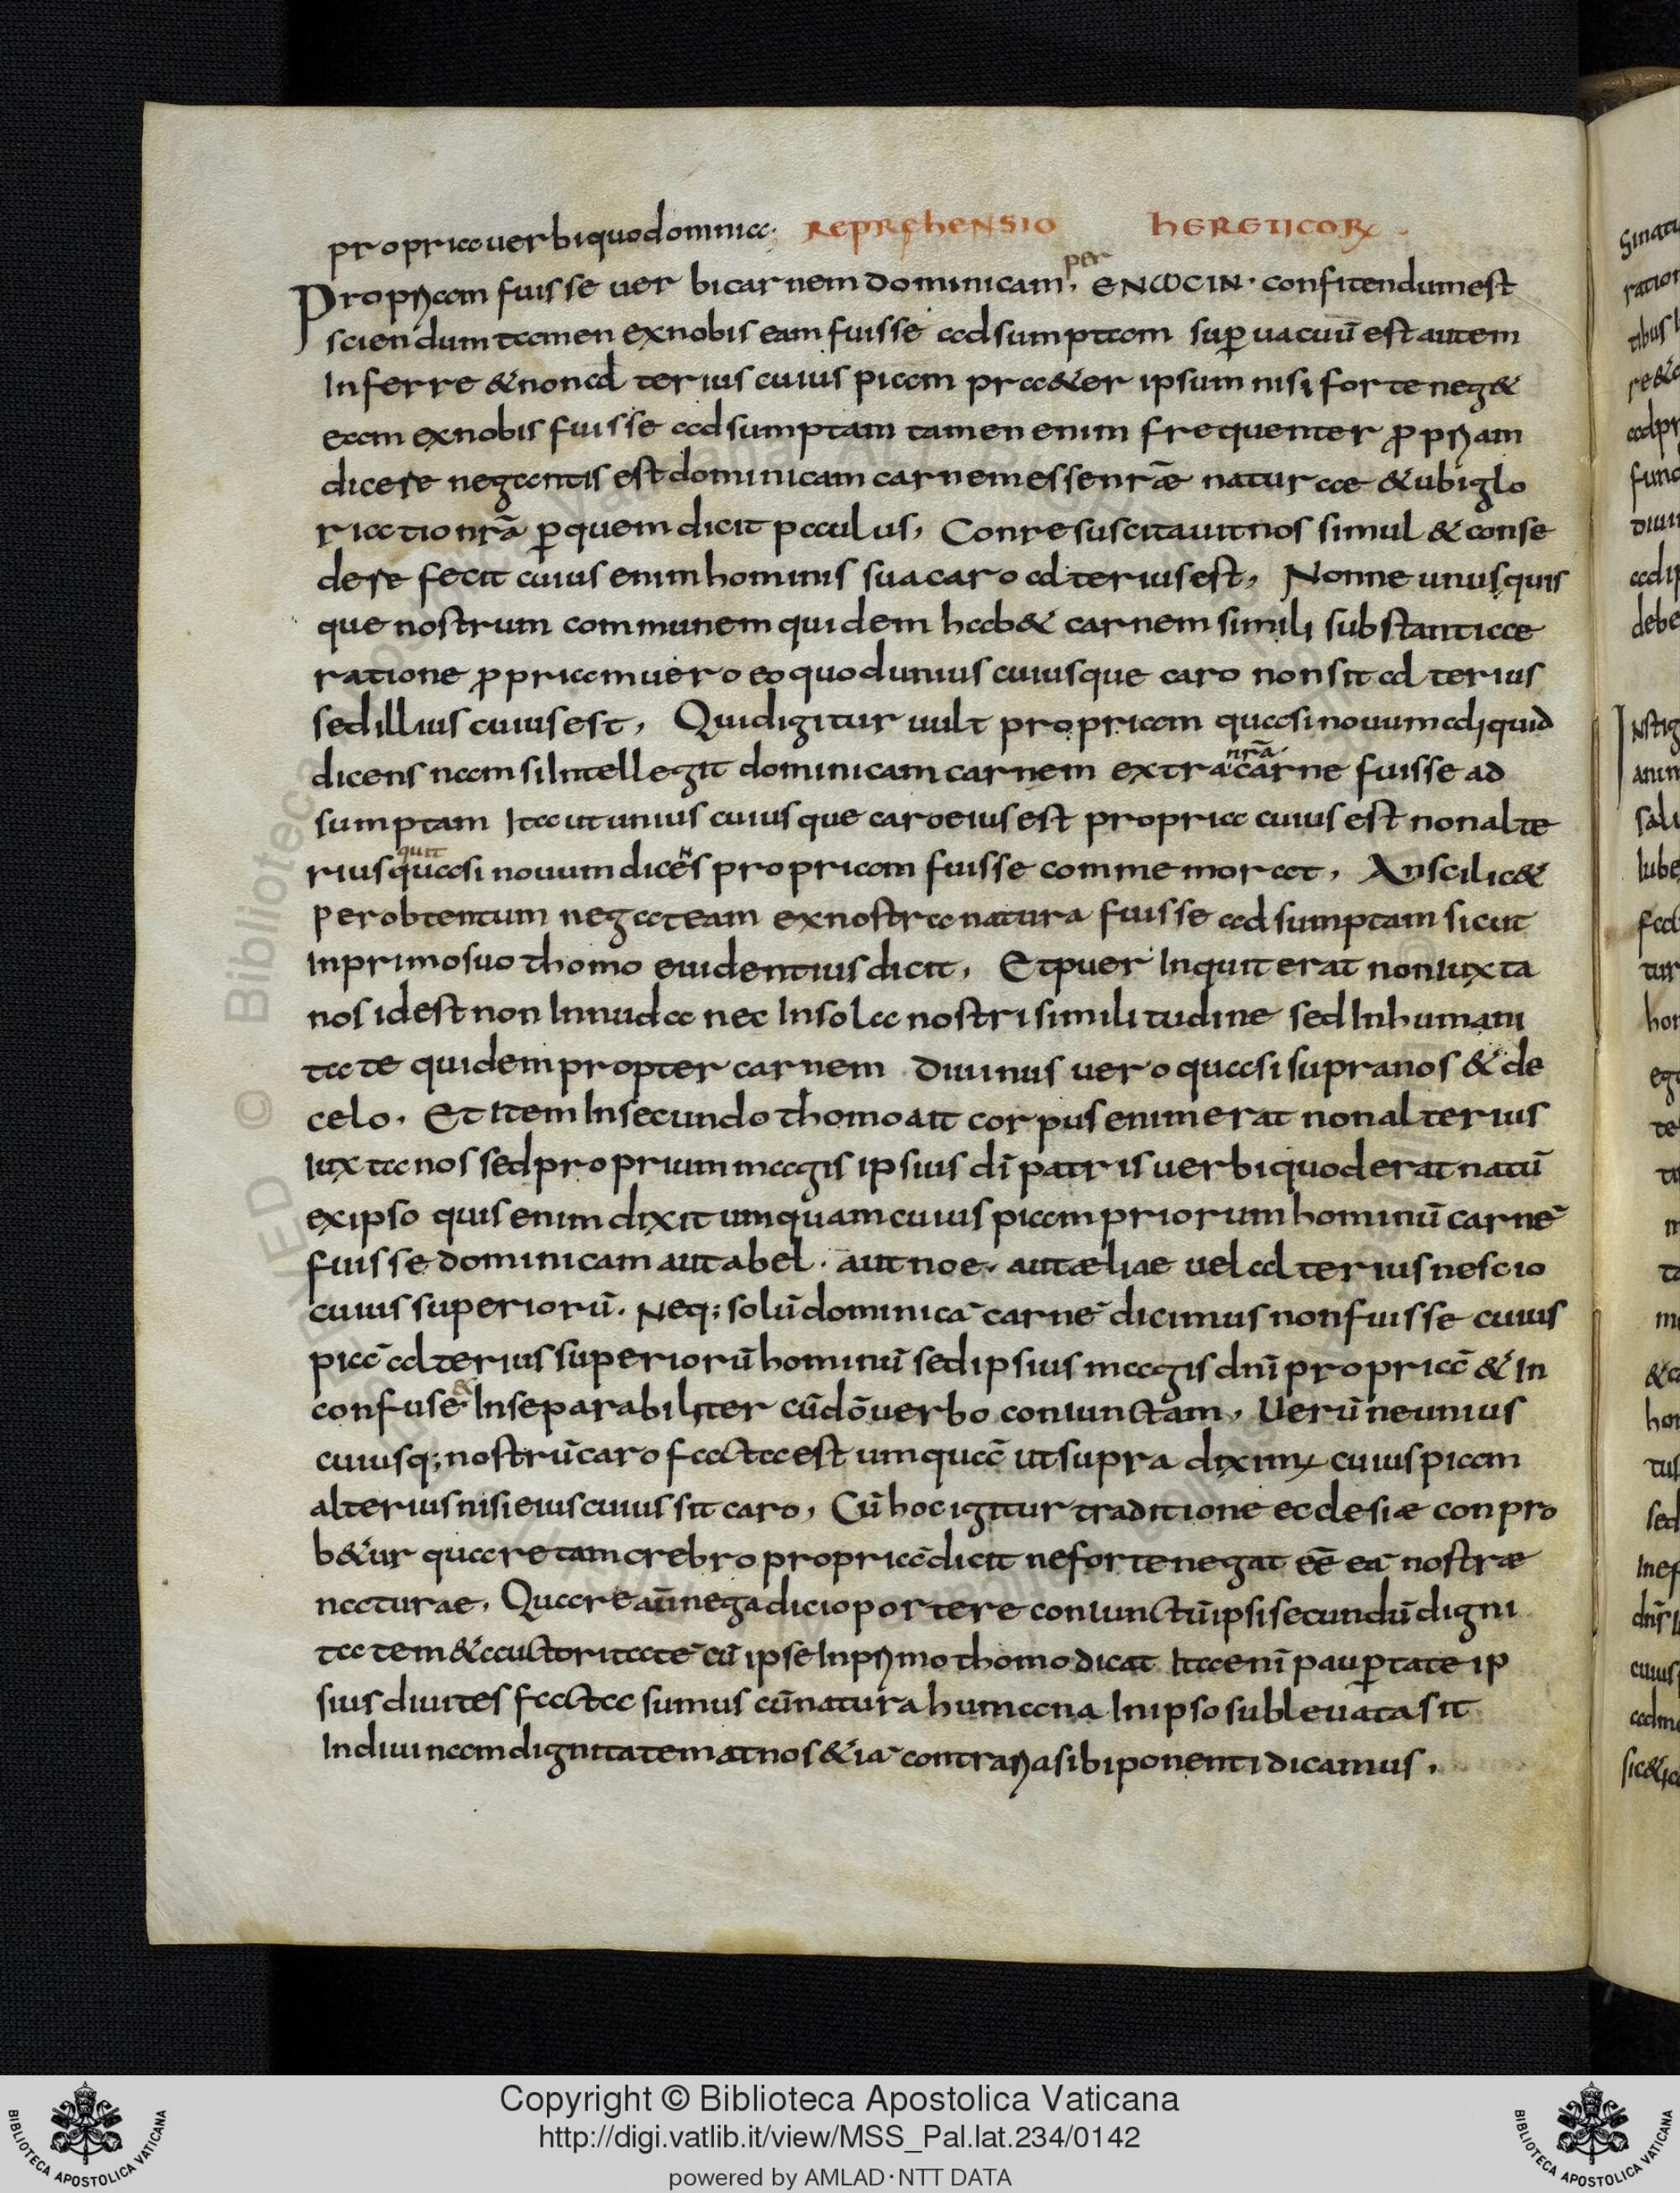 propria uerbi quodominica. REPREHENSIO HERETICORŪ
Propriam fuisse uerbi carnem dominicam, per ENωCIN. confitendum est
sciendum tamen ex nobis eam fuisse adsumptam sup̱uacuū est autem
Inferre & non alterius cuiuspiam praeter ipsum nisi forte neg&
eam ex nobis fuisse adsumptam tamen enim frequenter ꝓpriam
dicere negantis est dominicam carnem esse nr̄ae naturae & ubi glo
riatio nr̄a ꝑ quem dicit paulus, Conresuscitauit nos simul & conse
dere fecit cuius enim hominis sua caro alterius est, Nonne unusquis
que nostrum communem quidem hab& carnem simili substantiae
ratione ꝓpriam uero eo quod unius cuiusque caro non sit alterius
sed illius cuius est, Quid igitur uult propriam quasi nouum aliquid
dicens nam si Intellegit dominicam carnem extra nr̄a carne fuisse ad
sumptam Ita ut unius cuiusque caro eius est propria cuius est non alte
rius quit quasi nouum dicens propriam fuisse commemorat, An scilic&
per obtentum negat eam ex nostra natura fuisse adsumptam sicut
In primo suo thomo euidentius dicit, Et puer Inquit erat non iuxta
nos idest non In nuda nec In sola nostri similitudine sed In humani
tate quidem propter carnem diuinus uero quasi supra nos & de
celo. Et item In secundo thomo ait corpus enim erat non alterius
Iuxta nos sed proprium magis ipsius dī patris uerbi quod erat natū
ex ipso quis enim dixit umquam cuiuspiam priorum hominū carnē
fuisse dominicam aut abel. aut noe. aut æliae uel alterius nescio
cuius superiorū. Neq; solū dominicā carnē dicimus non fuisse cuius
piā alterius superiorū hominū sed ipsius magis dnī propriā & In
confuse & Inseparabiliter cū dō uerbo coniunctam, Uerū ne unius
cuiusq; nostrū caro facta est umquā ut supra diximꝰ cuiuspiam
alterius nisi eius cuius sit caro, Cū hoc igitur traditione ecclesiæ conpro
b&ur quare tam crebro propriā dicit ne forte negat eē eā nostræ
naturae, Quare aūt nega dicio portere coniunctū ipsi secundū digni
tatem & auctoritatē cū ipse In primo thomo dicat Ita enī pauꝑtate ip
sius diuites facta sumus cū natura humana In ipso subleuata sit
In diuinam dignitatem at nos &iā contraria sibi ponenti dicamus,
Copyright © Biblioteca Apostolica Vaticana
http://digi.vatlib.it/view/MSS_Pal.lat.234/0142
powered by AMLAD·NTT DATA
BIBLIOTECA APOSTOLICA VATICANA
BIBLIOTECA APOSTOLICA VATICANA